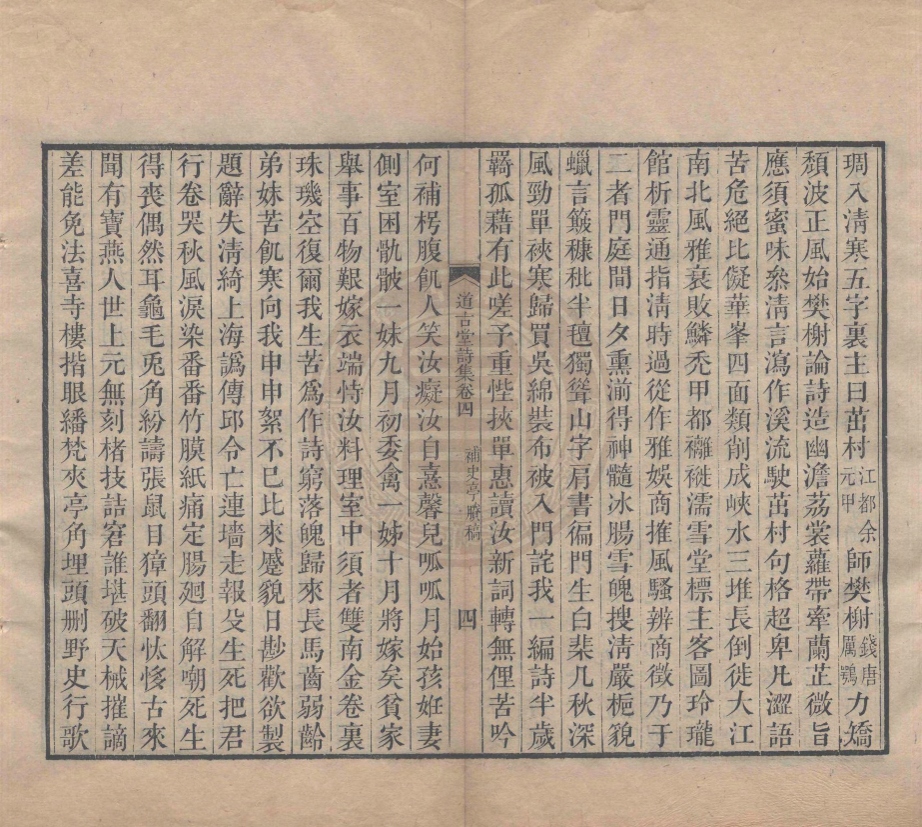 琱入清寒五字裏主曰茁村江都余元甲師樊榭錢唐厲鶚力矯
頹波正風始樊榭論詩造幽澹荔裳蘿帶牽蘭芷微旨
應須蜜味叅清言瀉作溪流駛茁村句格超卑凡澀語
苦危絕比儗華峯四面類削成峽水三堆長倒徙大江
南北風雅衰敗鱗禿甲都襹褷濡雪堂標主客圖玲瓏
館析靈通指清時過從作雅娛商搉風騷辨商徵乃于
二者門庭間日夕熏湔得神髓冰腸雪魄搜清嚴梔貌
蠟言簸穅秕半氊獨聳山字肩書徧門生白棐几秋深
風勁單裌寒歸買吳綿裝布被入門詫我一編詩半歲
羇孤藉有此嗟予重悂挾單惠讀汝新詞轉無俚苦吟
道古堂詩集卷四
補史亭賸稿
四
何補枵腹飢人笑汝癡汝自憙馨兒呱呱月始孩姙妻
側室困骩骳一妹九月初委禽一姊十月將嫁矣貧家
舉事百物艱嫁衣端恃汝料理室中須者雙南金卷裏
珠璣空復爾我生苦爲作詩窮落魄歸來長馬齒弱齡
弟妹苦飢寒向我申申絮不已比來蹙貌日尠歡欲製
題辭失清綺上海譌傳邱令亡連墻走報殳生死把君
行卷哭秋風淚染番番竹膜紙痛定腸廻自解嘲死生
得喪偶然耳龜毛兎角紛譸張鼠目獐頭翻忲恀古來
聞有寶燕人世上元無刻楮技詰窘誰堪破天械摧謫
差能免法喜寺樓揩眼繙梵夾亭角埋頭删野史行歌